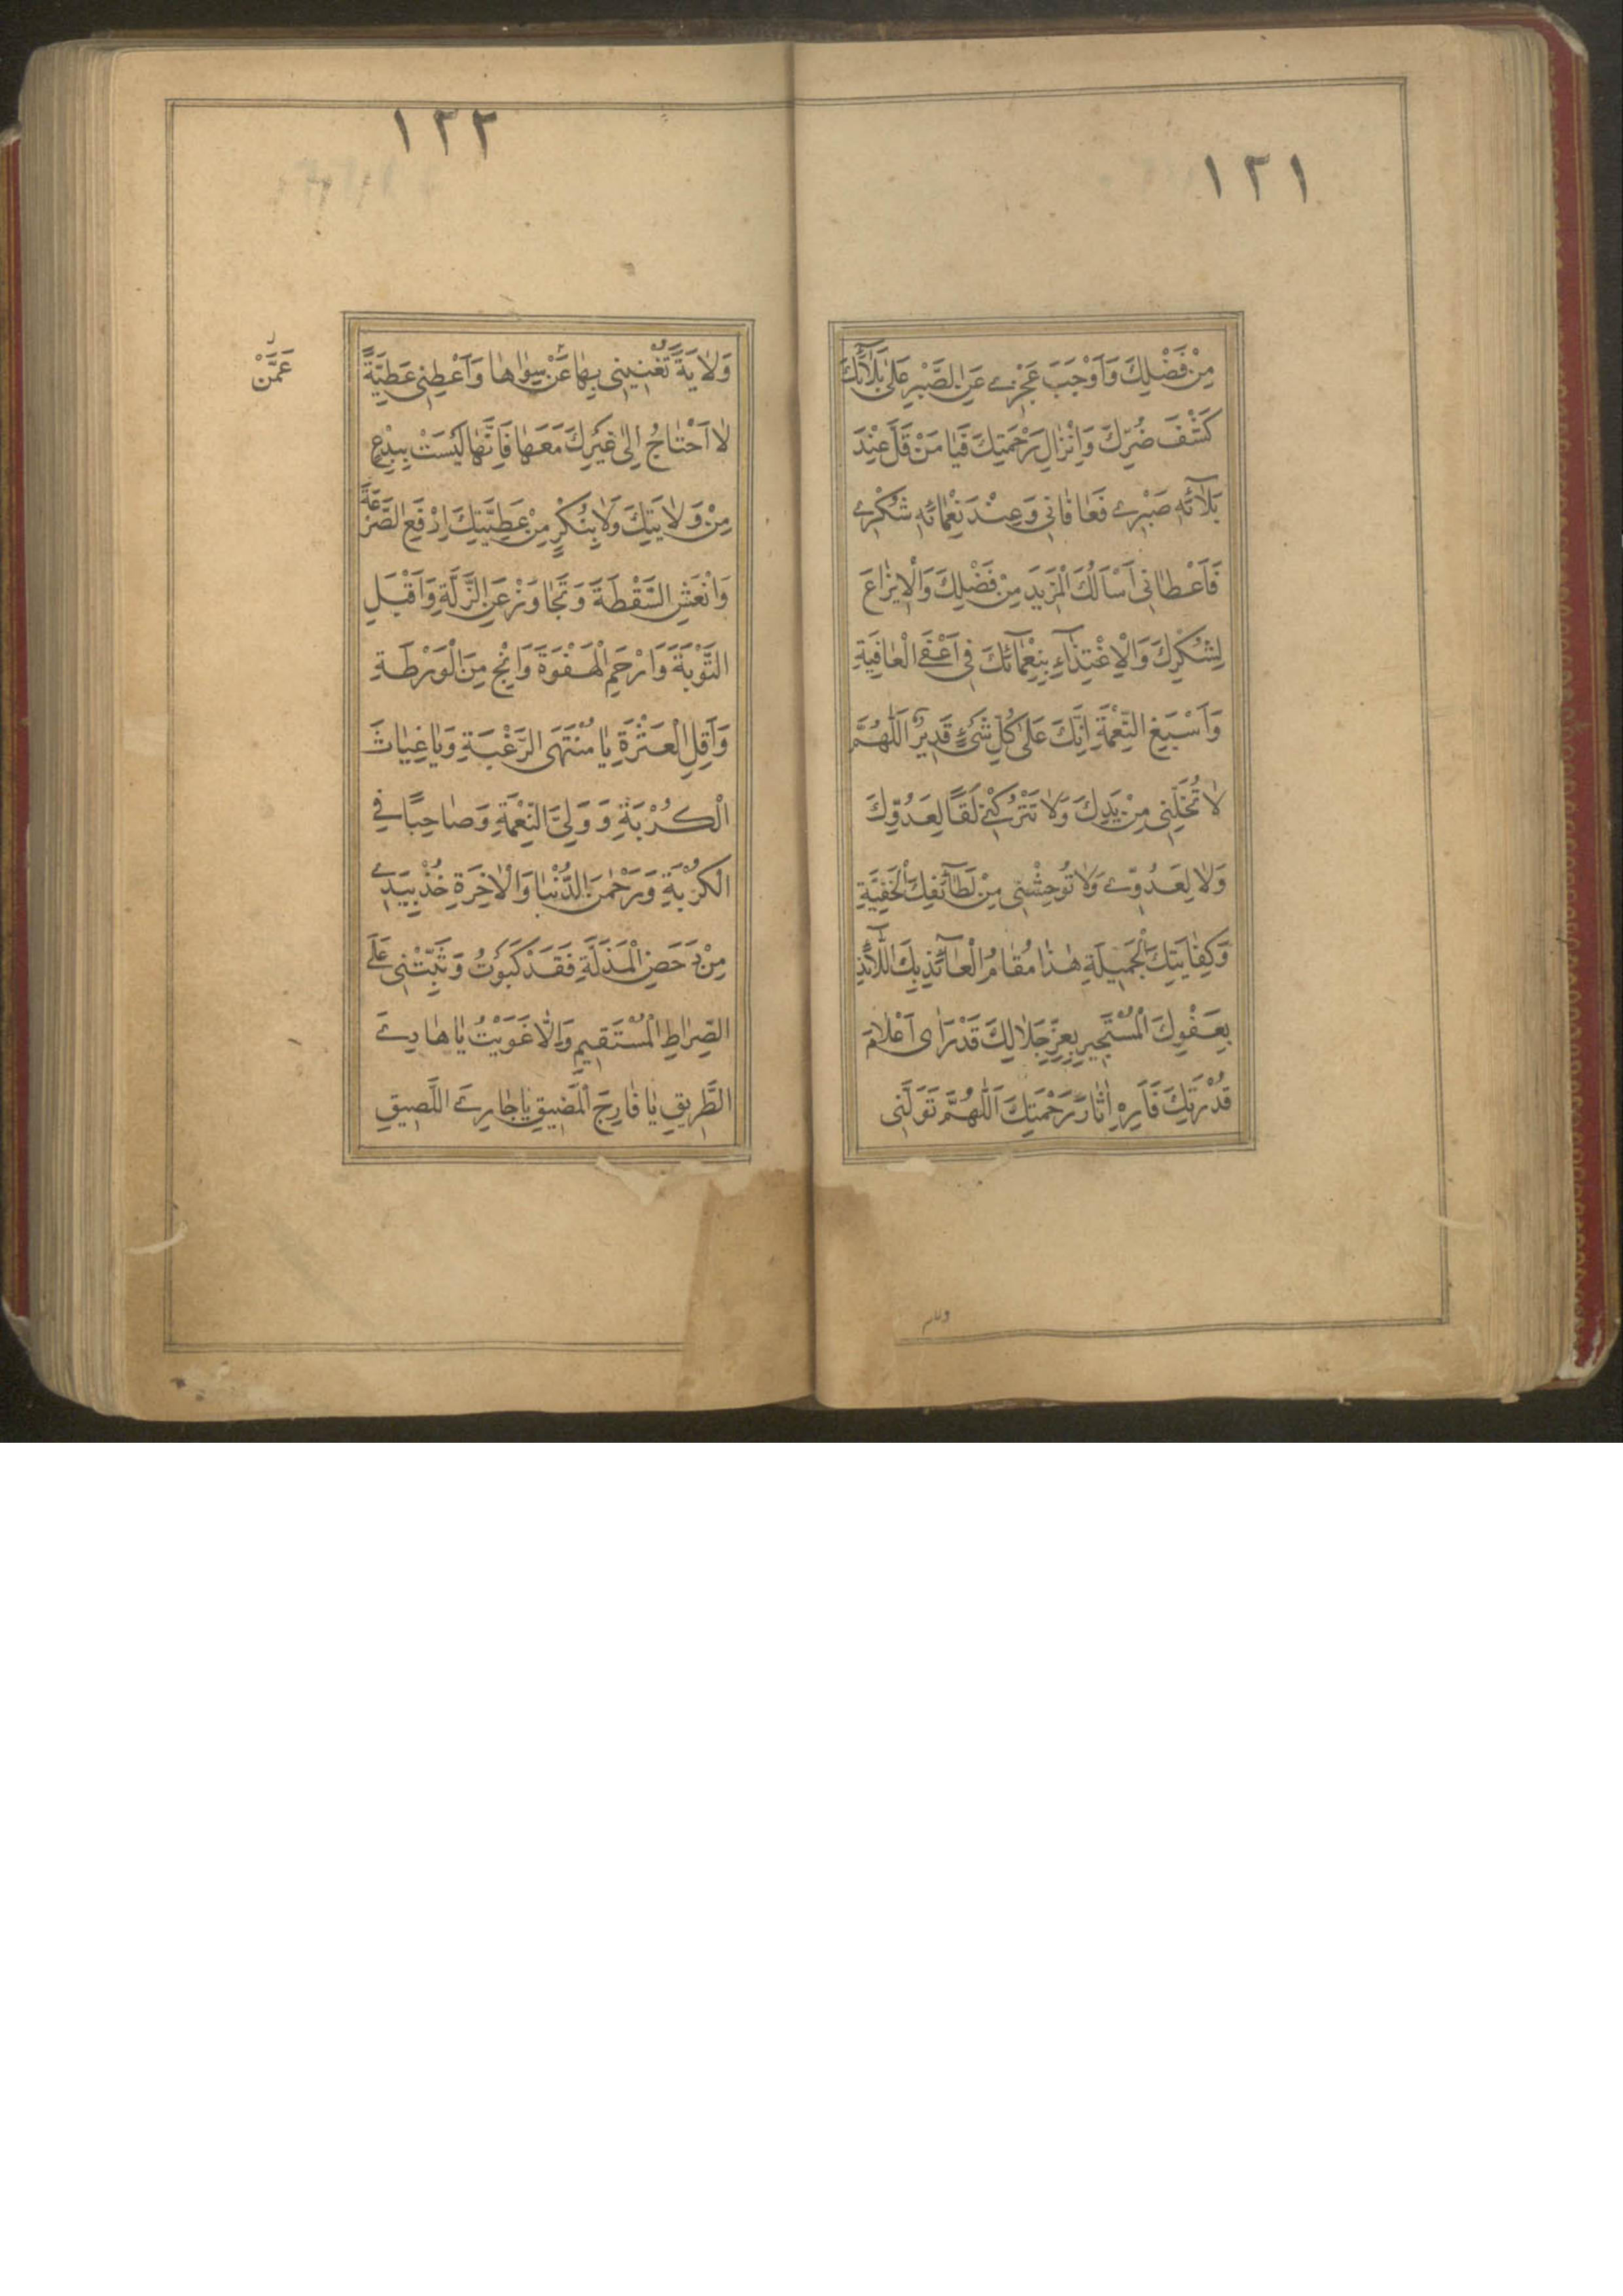 ١٢١
مِنْ فَضْلِكَ وَاَوْجَبَ عَجْزى عَنِ الصَّبْرِ عَلىٰ بَلآئِكَ
كَشْفَ ضُرِّكَ وَاِنْزالِ رَحْمَتِكَ فَيا مَنْ قَلَّ عِنْدَ
بَلآئِهِ صَبْرى فَعافانى وَعِنْدَ نَعْمائِهِ شُكْرى
فَاَعْطانى اَسْاَلُكَ الْمَزيدَ مِنْ فَضْلِكَ وَالْايزاعَ
لِشُكْرِكَ وَالْاِغْتِذآءِ بِنِعْمآئِكَ فى اَعْفَى الْعافِيَةِ
وَاَسْبَغِ النِّعْمَةِ اِنَّكَ عَلىٰ كُلِّ شَىْءٍ قَديرٌ اَللّٰهُمَّ
لا تُخَلِّنى مِنْ يَدِكَ وَلا تَتْرُكْنى لَقًا لِعَدُوِّكَ
وَلا لِعَدُوّى وَلا تُوحِشْنى مِنْ لَطآئِفِكَ الْخَفِيَّةِ
وَكِفايَتِكَ الْجَميلَةِ هٰذا مُقامُ الْعآئِذِ بِكَ اللّآئِذِ
بِعَفْوِكَ الْمُسْتَجيرِ بِعِزِّ جَلالِكَ قَدْ رَاٰى اَعْلامَ
قُدْرَتِكَ فَاَرِهِ اٰثارَ رَحْمَتِكَ اَللّٰهُمَّ تَوَلَّنى
١٢٢
وَلايَةً تُغْنينى بِها عَنْ سِواها وَاَعْطِنى عَطِيَّةً
عَمَّنْ
لا اَحْتاجُ اِلىٰ غَيْرِكَ مَعَها فَاِنَّها لَيْسَتْ بِبِدْعٍ
مِنْ وَلايَتِكَ وَلا بِنُكْرٍ مِنْ عَطِيَّتِكَ اِدْفَعِ الصَّرْعَةَ
وَانْعَشِ السَّقْطَةَ وَتَجاوَزْ عَنِ الزَّلَّةِ وَاقْبَلِ
التَّوْبَةَ وَارْحَمِ الْهَفْوَةَ وَانْجِ مِنَ الْوَرْطَةِ
وَاَقِلِ الْعَثْرَةِ يا مُنْتَهَى الرَّغْبَةِ وَيا غِياثَ
الْكُرْبَةِ وَوَلِىَّ النِّعْمَةِ وَصاحِبًا فى
الْكُرْبَةِ وَرَحْمٰنَ الدُّنْيا وَالْاٰخِرَةِ خُذْ بِيَدى
مِنْ دَحَضِ الْمَذَلَّةِ فَقَدْ كَبَوْتُ وَثَبِّتْنى عَلَى
الصِّراطِ الْمُسْتَقيمِ وَاِلّا غَوَيْتُ يا هادِىَ
الطَّريقِ يا فارِجَ الْمَضيقِ يا جارِىَ اللَّصيقِ